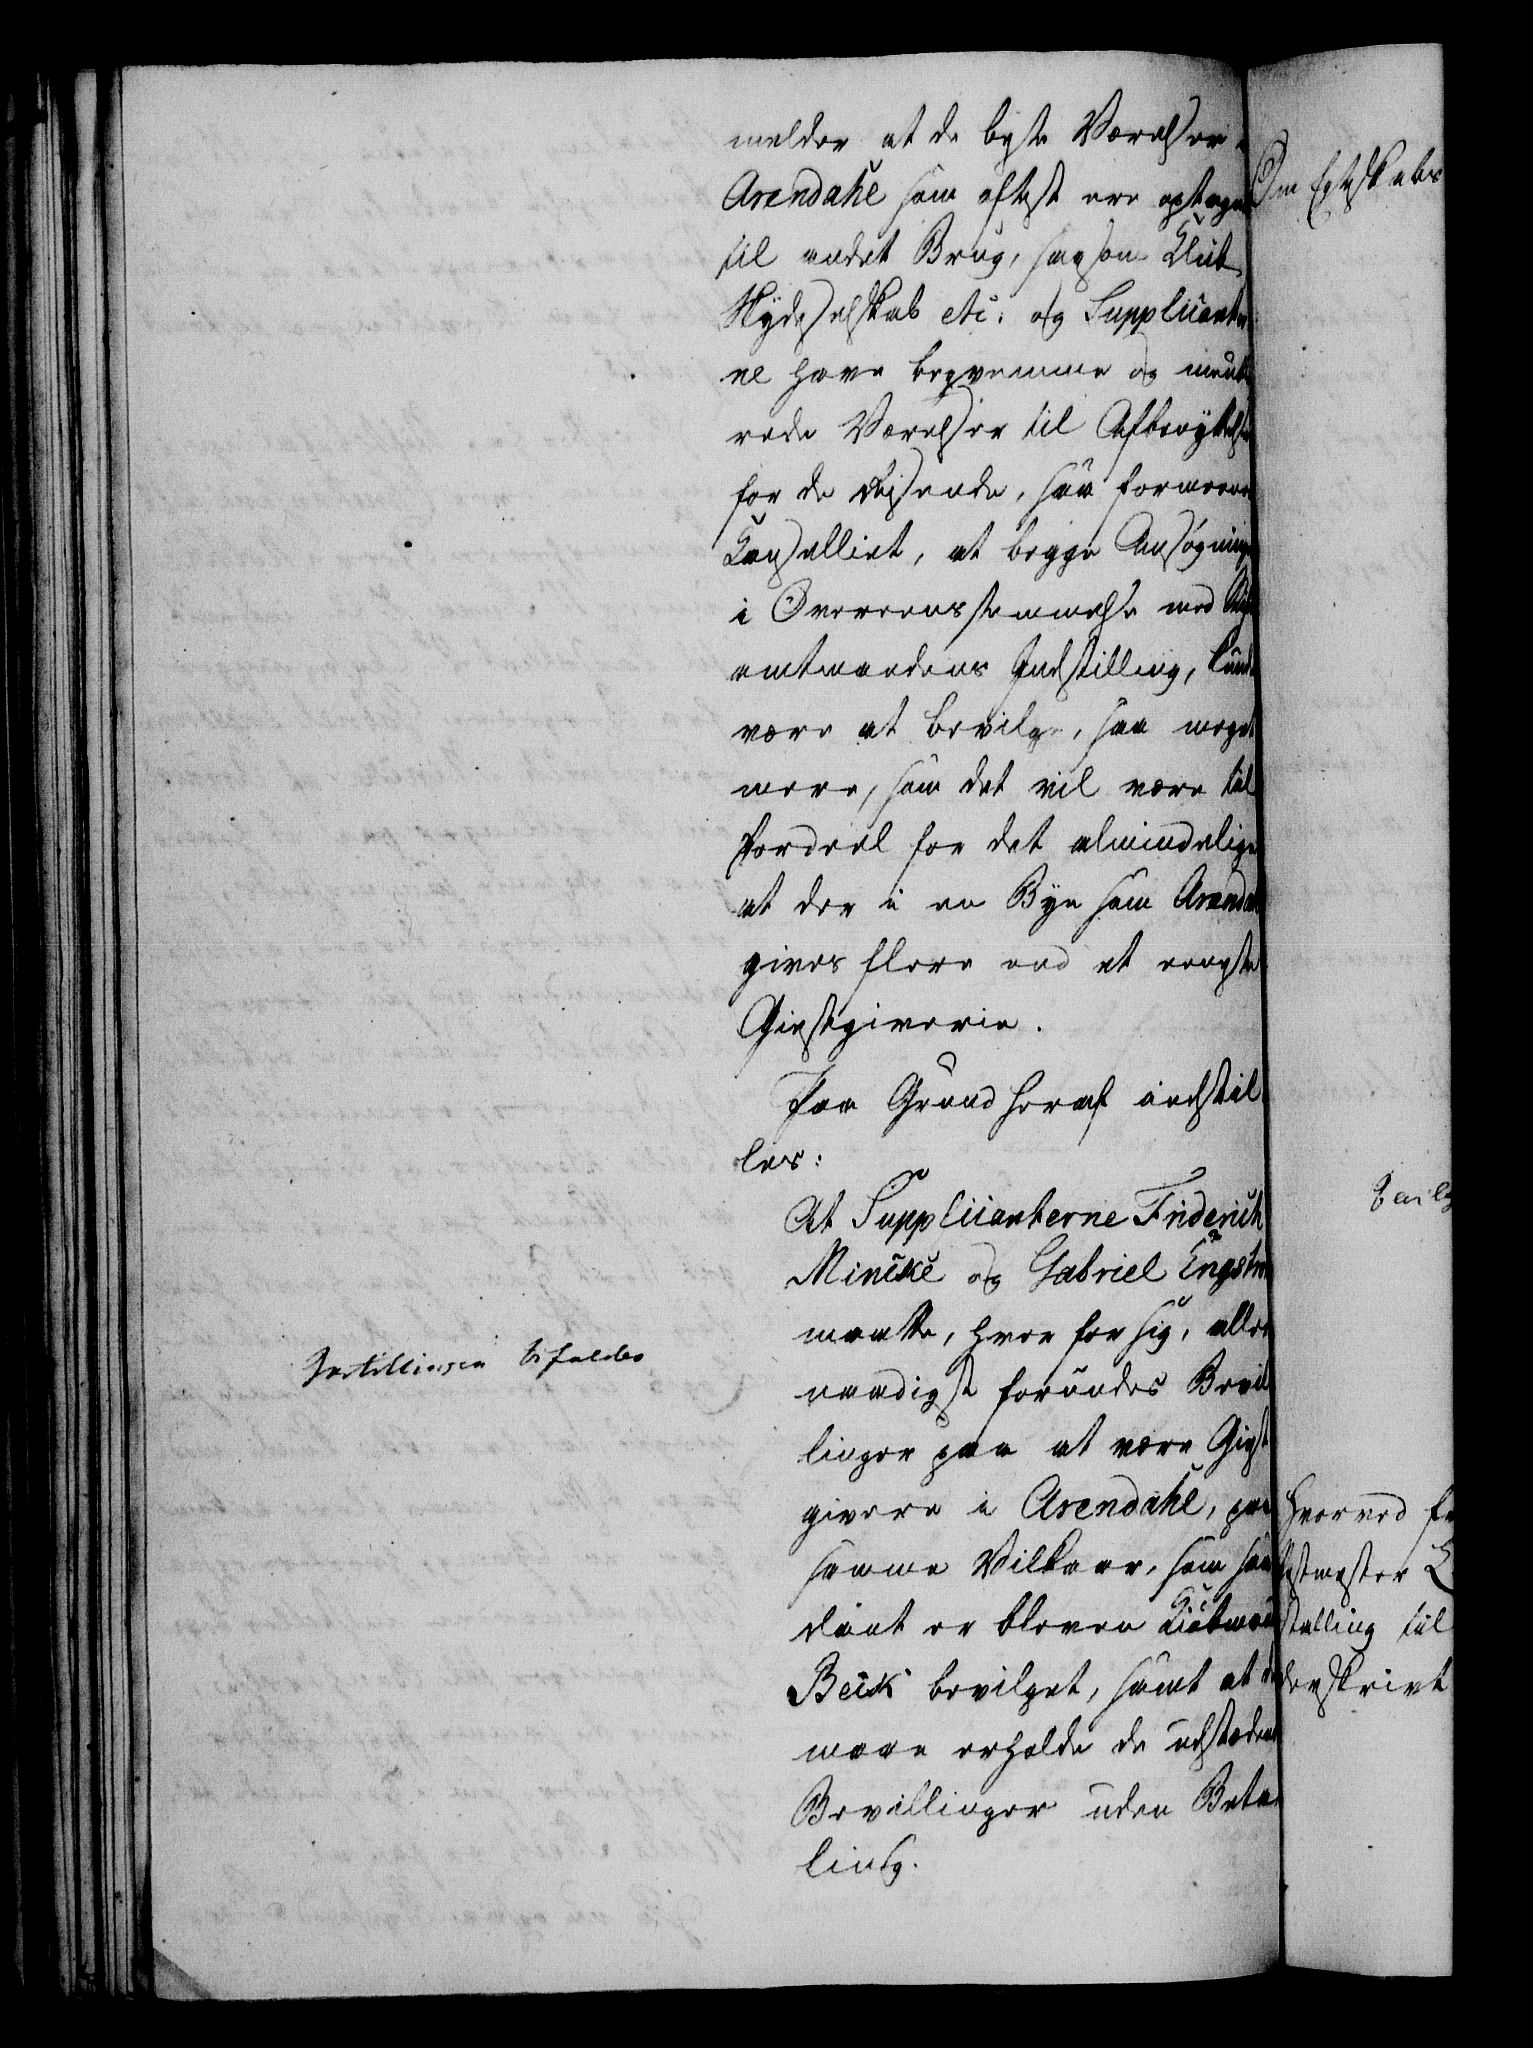 melder at de beste Værelser i
Arendahl som oftest ere optagne
til andet Brug, saasom Klub
Skydeselskab etc: og Supplicanter
ne have beqvemme og meuble
rede Værelser til Afbenyttelse
for de Reisende, saa formeener
Cancelliet, at begge Ansøgninger
i Overeensstemmelse med Stift
amtmandens Indstilling, kunde
være at bevilge, saa meget
mere, som det vil være til
Fordeel for det almindelige
at der i en Bye som Arendal
gives flere end et eeneste
Giestgiverie.
Paa Grund heraf indstil
les:
At Supplicanterne Friderich
Mincke og Gabriel Engstrøm
maatte, hver for sig, aller
naadigst forundes Bevil
linger paa at være Giest
givere i Arendahl, paa
samme Vilkaar, som saa
dant er bleven
Beck bevilget, samt at de
maae erholde de udstædende
Bevillinger uden Beta
ling.
Indstillingen bifaldes
Om Egteskabs
hvorved
stmester
stilling til
derskrivt